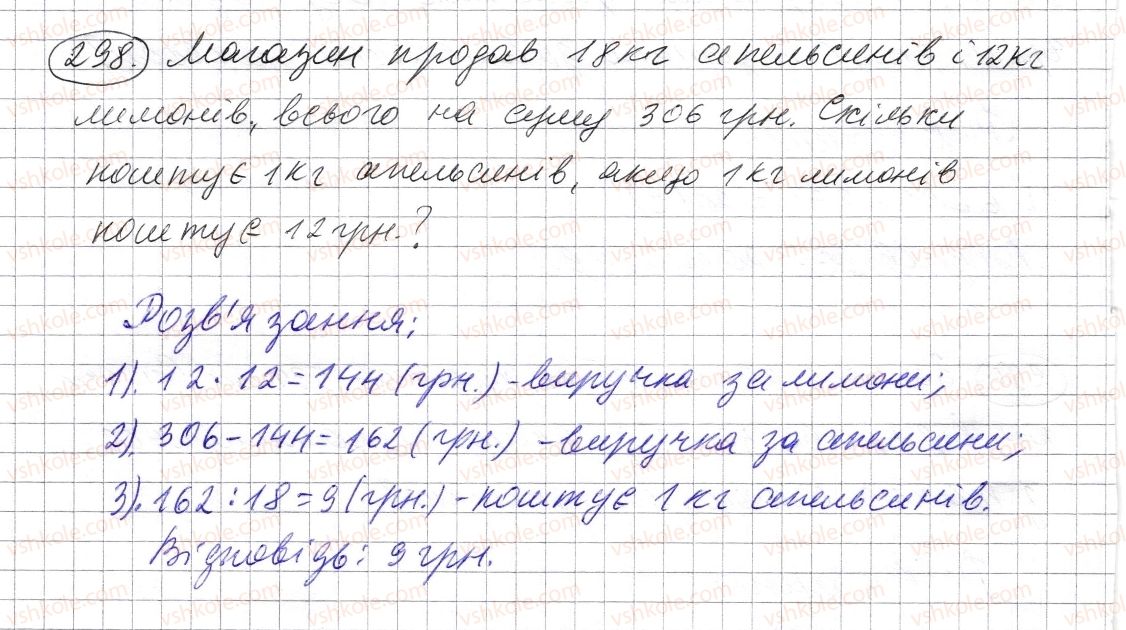 298. Магазин продав 18 кг апельсинів і 12 кг
лимонів, всього на суму 306 грн. Скільки
коштує 1 кг апельсинів, якщо 1 кг лимонів
коштує 12 грн.?
Розв'язання:
1). 12 · 12 = 144 (грн.) - виручка за лимони;
2). 306 - 144 = 162 (грн.) - виручка за апельсини;
3). 162 : 18 = 9 (грн.) - коштує 1 кг апельсинів.
Відповідь: 9 грн.